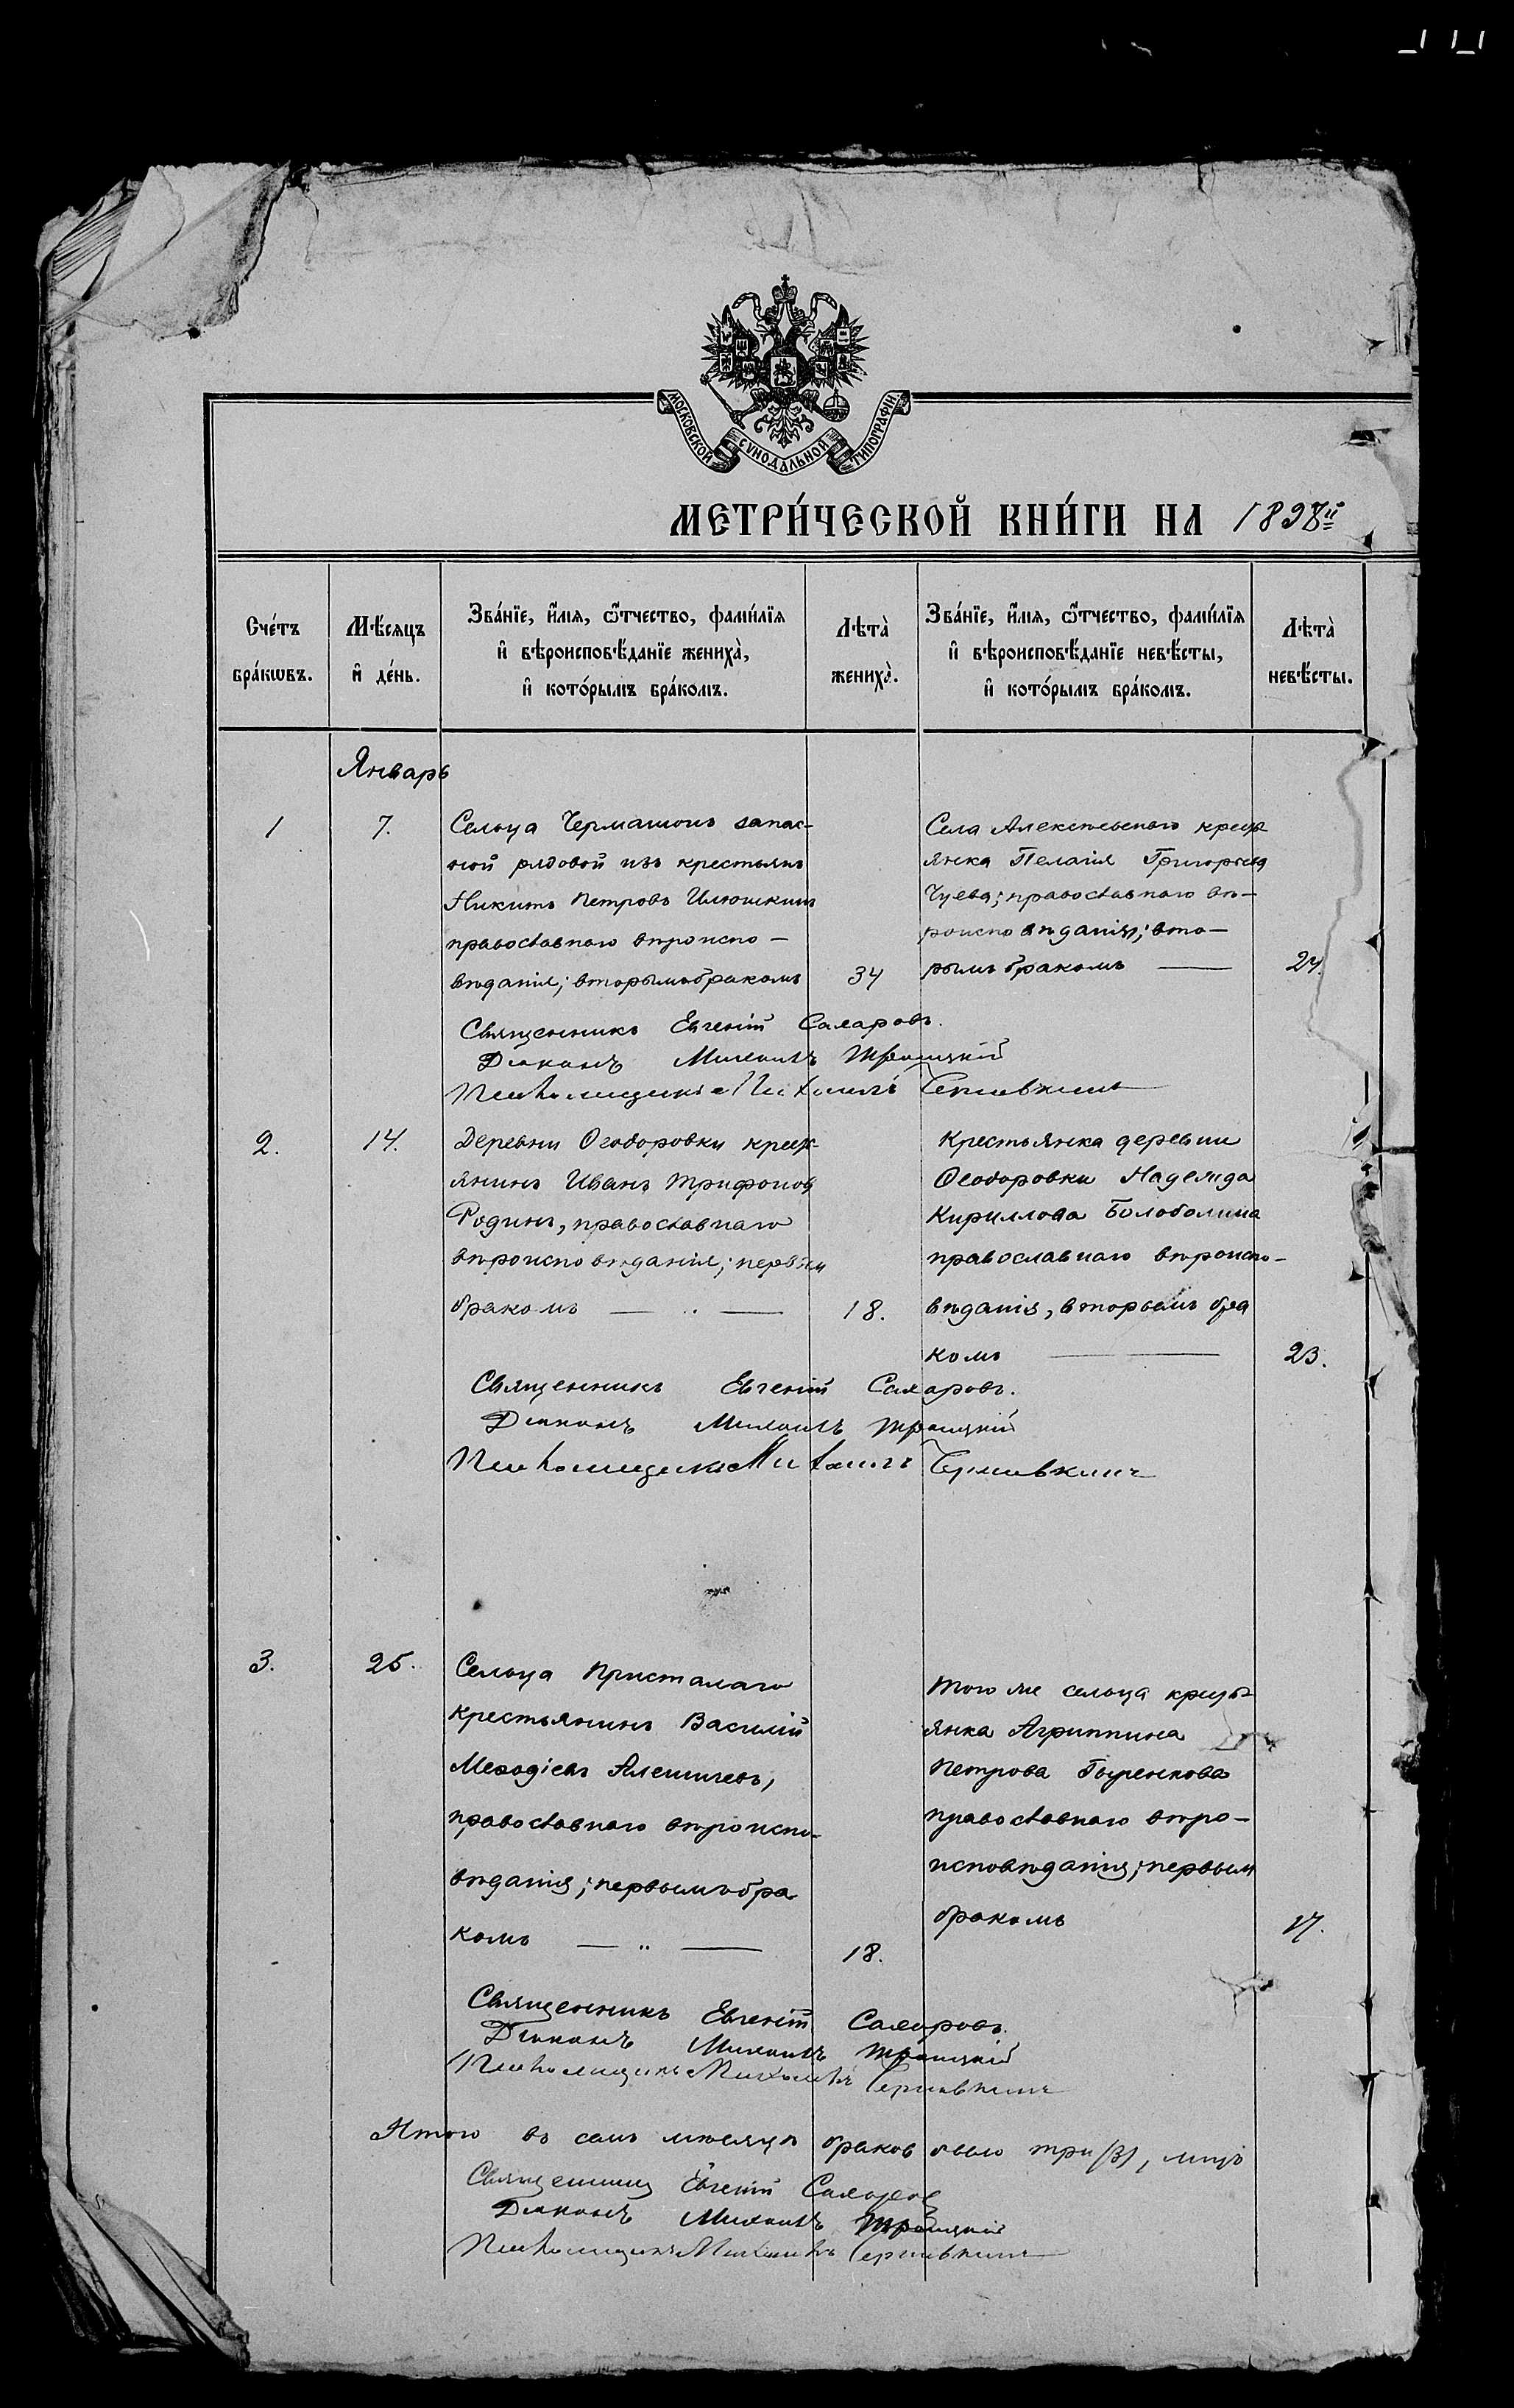 МОСКОВСКОЙ СУНОДАЛЬНОЙ ТИПОГРАФІИ
МЕТРИ́ЧЕСКОЙ КНИ́ГИ НА 1898й
Сче́тъ бра́кωвъ.
Мѣ́сяцъ и҆ де́нь.
Зва́нїе, и҆́мя, ѻ҆́тчество, фами́лїя
и҆ вѣроисповѣ́данїе жениха̀,
и҆ кото́рымъ бра́комъ.
Лѣта̀ жениха̀.
Зва́нїе, и҆́мя, ѻ҆́тчество, фами́лїя
и҆ вѣроисповѣ́данїе невѣ́сты,
и҆ кото́рымъ бра́комъ.
Лѣта̀ невѣ́сты.
Январь
1
7.
Сельца Чермашонъ запас-
ной рядовой изъ крестьянъ
Никита Петровъ Илюшкинъ
православнаго вѣроиспо-
вѣданія; вторымъ бракомъ
34
Села Алексѣевскаго крестья
янка Пелагія Григорьева
Чуева; православнаго вѣ-
роисповѣданія; вто-
рымъ бракомъ
24.
Священникъ Евгеній Сахаровъ.
Діаконъ Михаилъ Троицкій
Псаломщикъ Михаилъ
2.
14.
Деревни Ѳеодоровки крест-
янинъ Иванъ Трифоновъ
Родинъ, православнаго
вѣроисповѣданія; первымъ
бракомъ — " —
18.
Крестьянка деревни
Ѳеодоровки Надежда
Кириллова Болоболина
православнаго вѣроиспо-
вѣданія, вторымъ бра
комъ
23.
Священникъ Евгеній Сахаровъ.
Діаконъ Михаилъ Троицкій
Псаломщикъ Михаилъ
3.
25.
Сельца Присталаго
крестьянинъ Василій
Меѳодіевъ Алешичевъ,
православнаго вѣроиспо-
вѣданія; первымъ бра
комъ — " —
18.
Того же сельца крестья
янка Агриппина
Петрова
православнаго вѣро-
исповѣданія; первымъ
бракомъ
17.
Священникъ Евгеній Сахаровъ.
Діаконъ Михаилъ Троицкій
Псаломщикъ Михаилъ
Итого въ семъ мѣсяцѣ браковъ было три (3), лицъ
Священникъ Евгеній Сахаровъ
Діаконъ Михаилъ Троицкій
Псаломщикъ Михаилъ